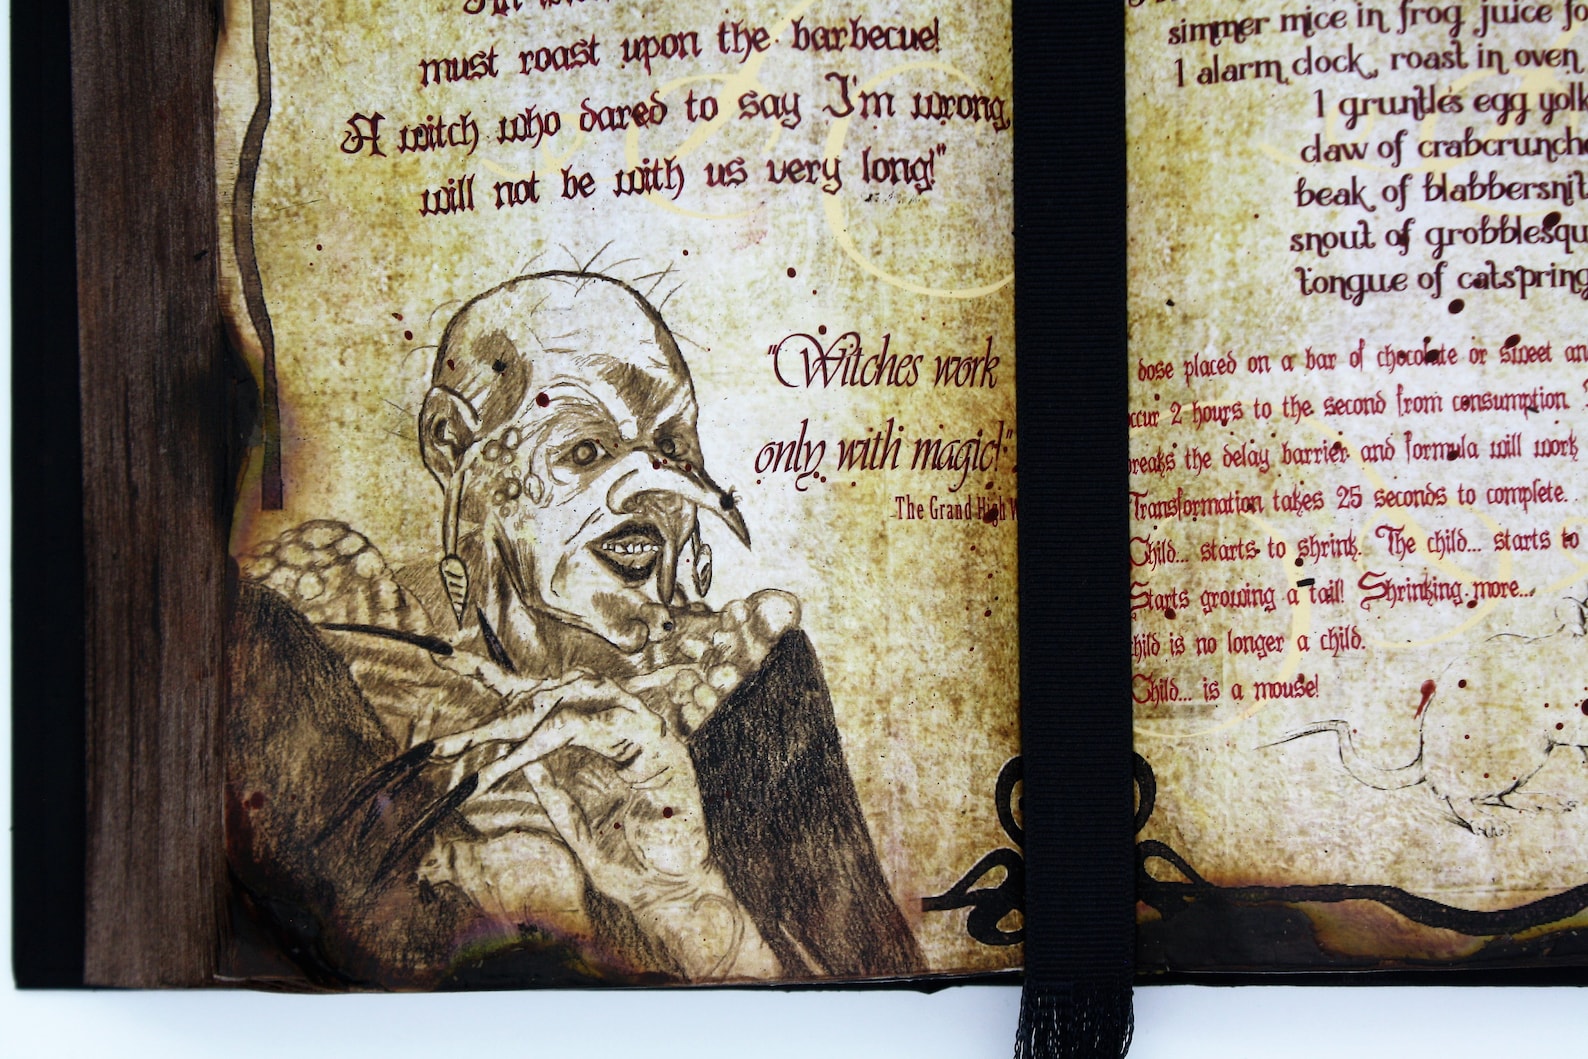 must roast upon the barbecue!
A witch who dared to say I'm wrong,
will not be with us very long!"
"Witches work
only with magic!"
The Grand High
simmer mice in frog juice
1 alarm clock, roast in oven
1 gruntles egg yolk
claw of
beak of
snout of
tongue of
dose placed on a bar of chocolate or sweet
2 hours to the second from consumption
the delay barrier and formula will work
Transformation takes 25 seconds to complete.
Child... starts to shrink. The child... starts to
Starts growing a tail! Shrinking more...
child is no longer a child.
Child... is a mouse!